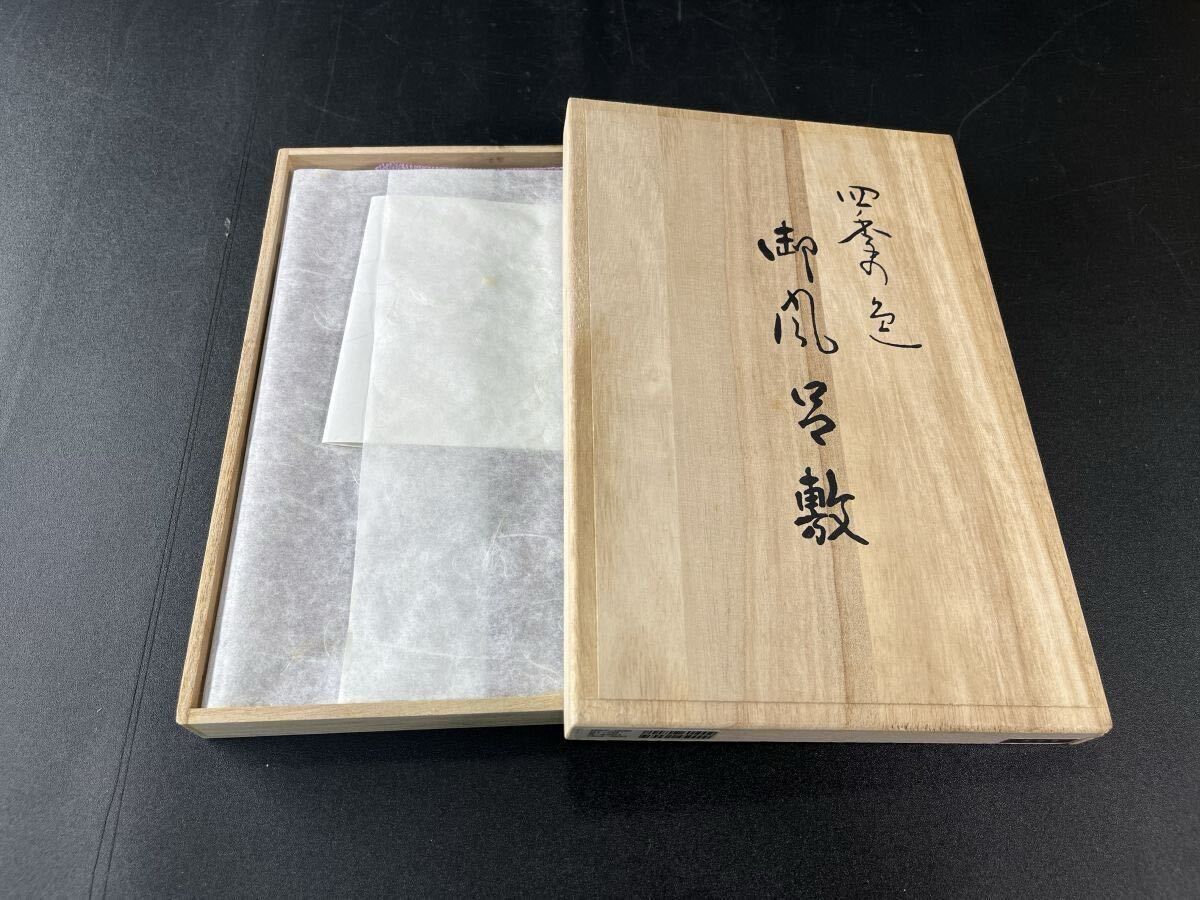 四季の色
御風呂敷